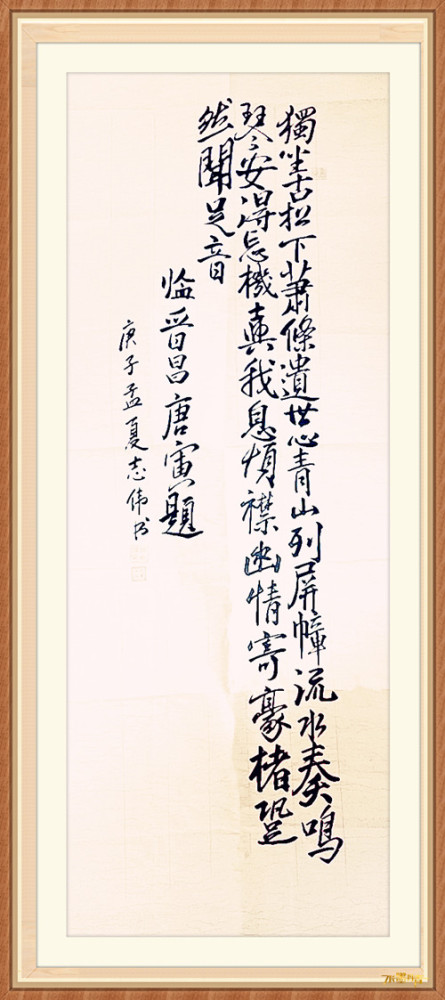 獨坐古松下蕭條遺世心青山列屏幛流水奏鳴
琴安得忘機與我息煩襟幽情寄豪楮跫
然聞足音
臨晉昌唐寅題
庚子孟夏志伟书